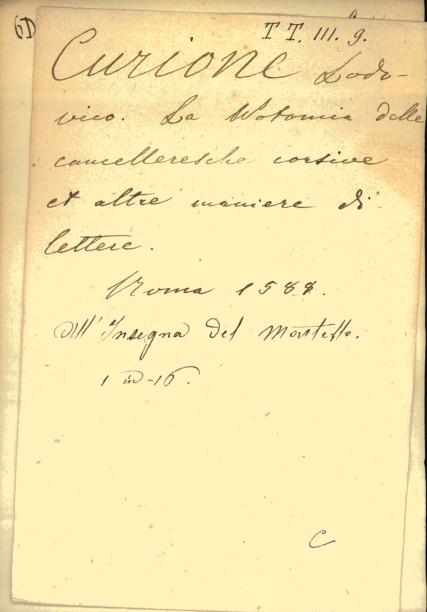 6D
T T. III. 9.
Curione Lodo-
vico. La Notomia delle
cancelleresche corsive
et altre maniere di
lettere.
Roma 1588.
All'Insegna del Martello.
1 in-16.
C